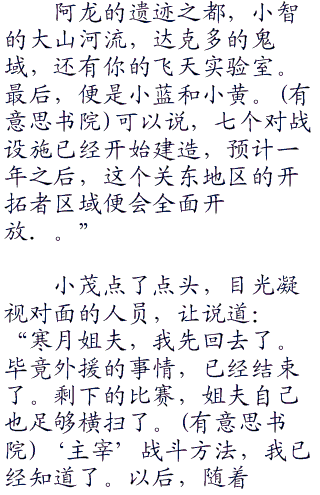 阿龙的遗迹之都，小智
的大山河流，达克多的鬼
域，还有你的飞天实验室。
最后，便是小蓝和小黄。(有
意思书院)可以说，七个对战
设施已经开始建造，预计一
年之后，这个关东地区的开
拓者区域便会全面开
放．。”
小茂点了点头，目光凝
视对面的人员，让说道：
“寒月姐夫，我先回去了。
毕竟外援的事情，已经结束
了。剩下的比赛，姐夫自己
也足够横扫了。(有意思书
院)‘主宰’战斗方法，我已
经知道了。以后，随着